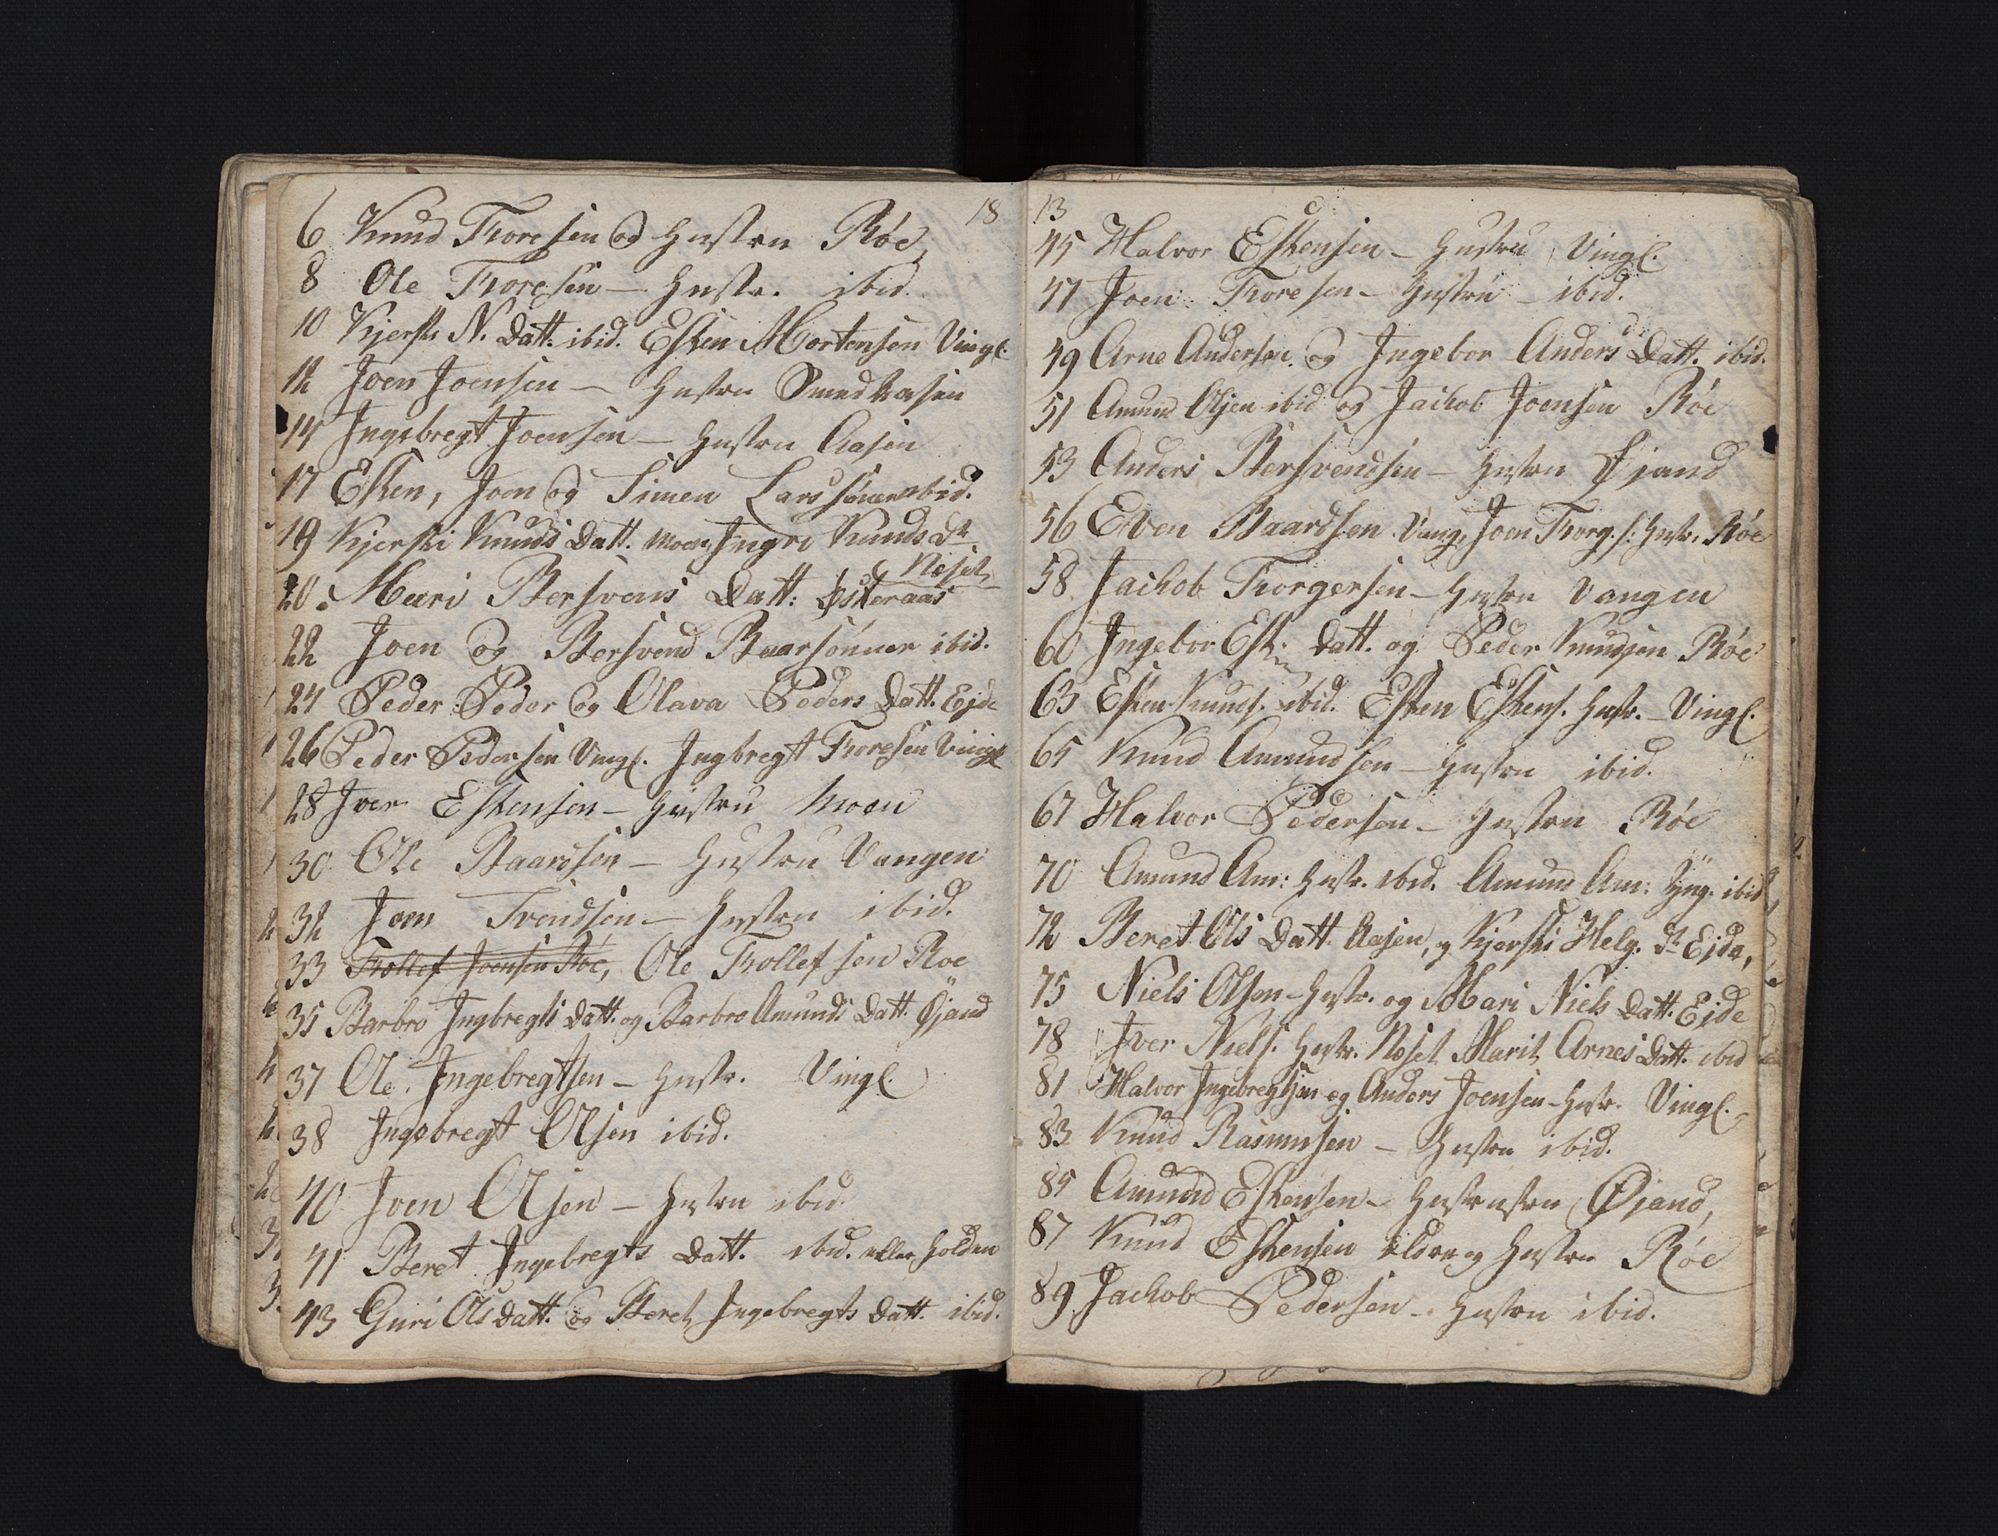 18
6 Knud Toresen og Hustru Røe
8 Ole Toresen – Hustr. ibid.
10 Kjersti N. Datt. ibid. Esten Mortensen Vingl.
12 Joen Joensen – Hustru Smedaasen
14 Ingebregt Joensen – Hustru Aasen
17 Esten, Joen og Simen Larssønner ibid.
19 Kjersti Knuds Datt. Moen, Ingri Knuds Dr
Neset
20 Mari Bersvens Datt: Østeraas
22 Joen og Bersvend Baarsønner ibid.
24 Peder Peder og Olava Peders Datt. Ejde
26 Peder Pedersen Vingl. Ingbregt Toresen Vingl
28 Iver Estensen – Hustru Moen
30 Ole Baardsen – Hustru Vangen
32 Joen Svendsen – Hustru ibid.
33 Tollef Joensen Røe, Ole Tollefsen Roe
35 Barbro Ingbregts Datt. og Barbro Amunds Datt. Øjand
37 Ole Ingebregtsen – Hustr. Vingl.
38 Ingebregt Olsen ibid.
40 Joen Olsen – Hustru ibid
41 Beret Ingebregts Datt. ibid. eller Holden
43 Guri Ols Datt. og Beret Ingebregts Datt. ibid.
13
45 Halvor Estensen – Hustru Vingl.
47 Joen Toresen – Hustru – ibid.
49 Arne Andersen og Ingebor Anders Datt. ibid.
51 Amund Olsen ibid og Jachob Joensen Røe
53 Anders Bersvendsen – Hustru Øjand
56 Even Baardsen Vang. Joen Torg.s: Hustr. Røe
58 Jachob Torgersen – Hustru Vangen
60 Ingebor Est. Datt. og Peder Knudsen Røe
63 Esten Knuds. ibid. Esten Estens. Hustr. – Vingl.
65 Knud Amundsen – Hustru ibid.
67 Halvor Pedersen – Hustru Røe
70 Amund Am: Hustr. ibid. Amund Am: Yng. ibid
72 Beret Ols Datt. Aasen, og Kjersti Helg. Dr Ejde,
75 Niels Olsen – Hustr. og Mari Niels Datt. Ejde
78 Iver Niels. Hustr. Neset Marit Arnes Datt. ibid
81 Halvor Ingebregtsen og Anders Joensen – Hustr. Vingl.
83 Knud Rasmusen – Hustru ibid.
85 Amund Estensen – Hustrustru Øjand,
87 Knud Estensen eldre og Hustru Røe
89 Jachob Pedersen – Hustru ibid.